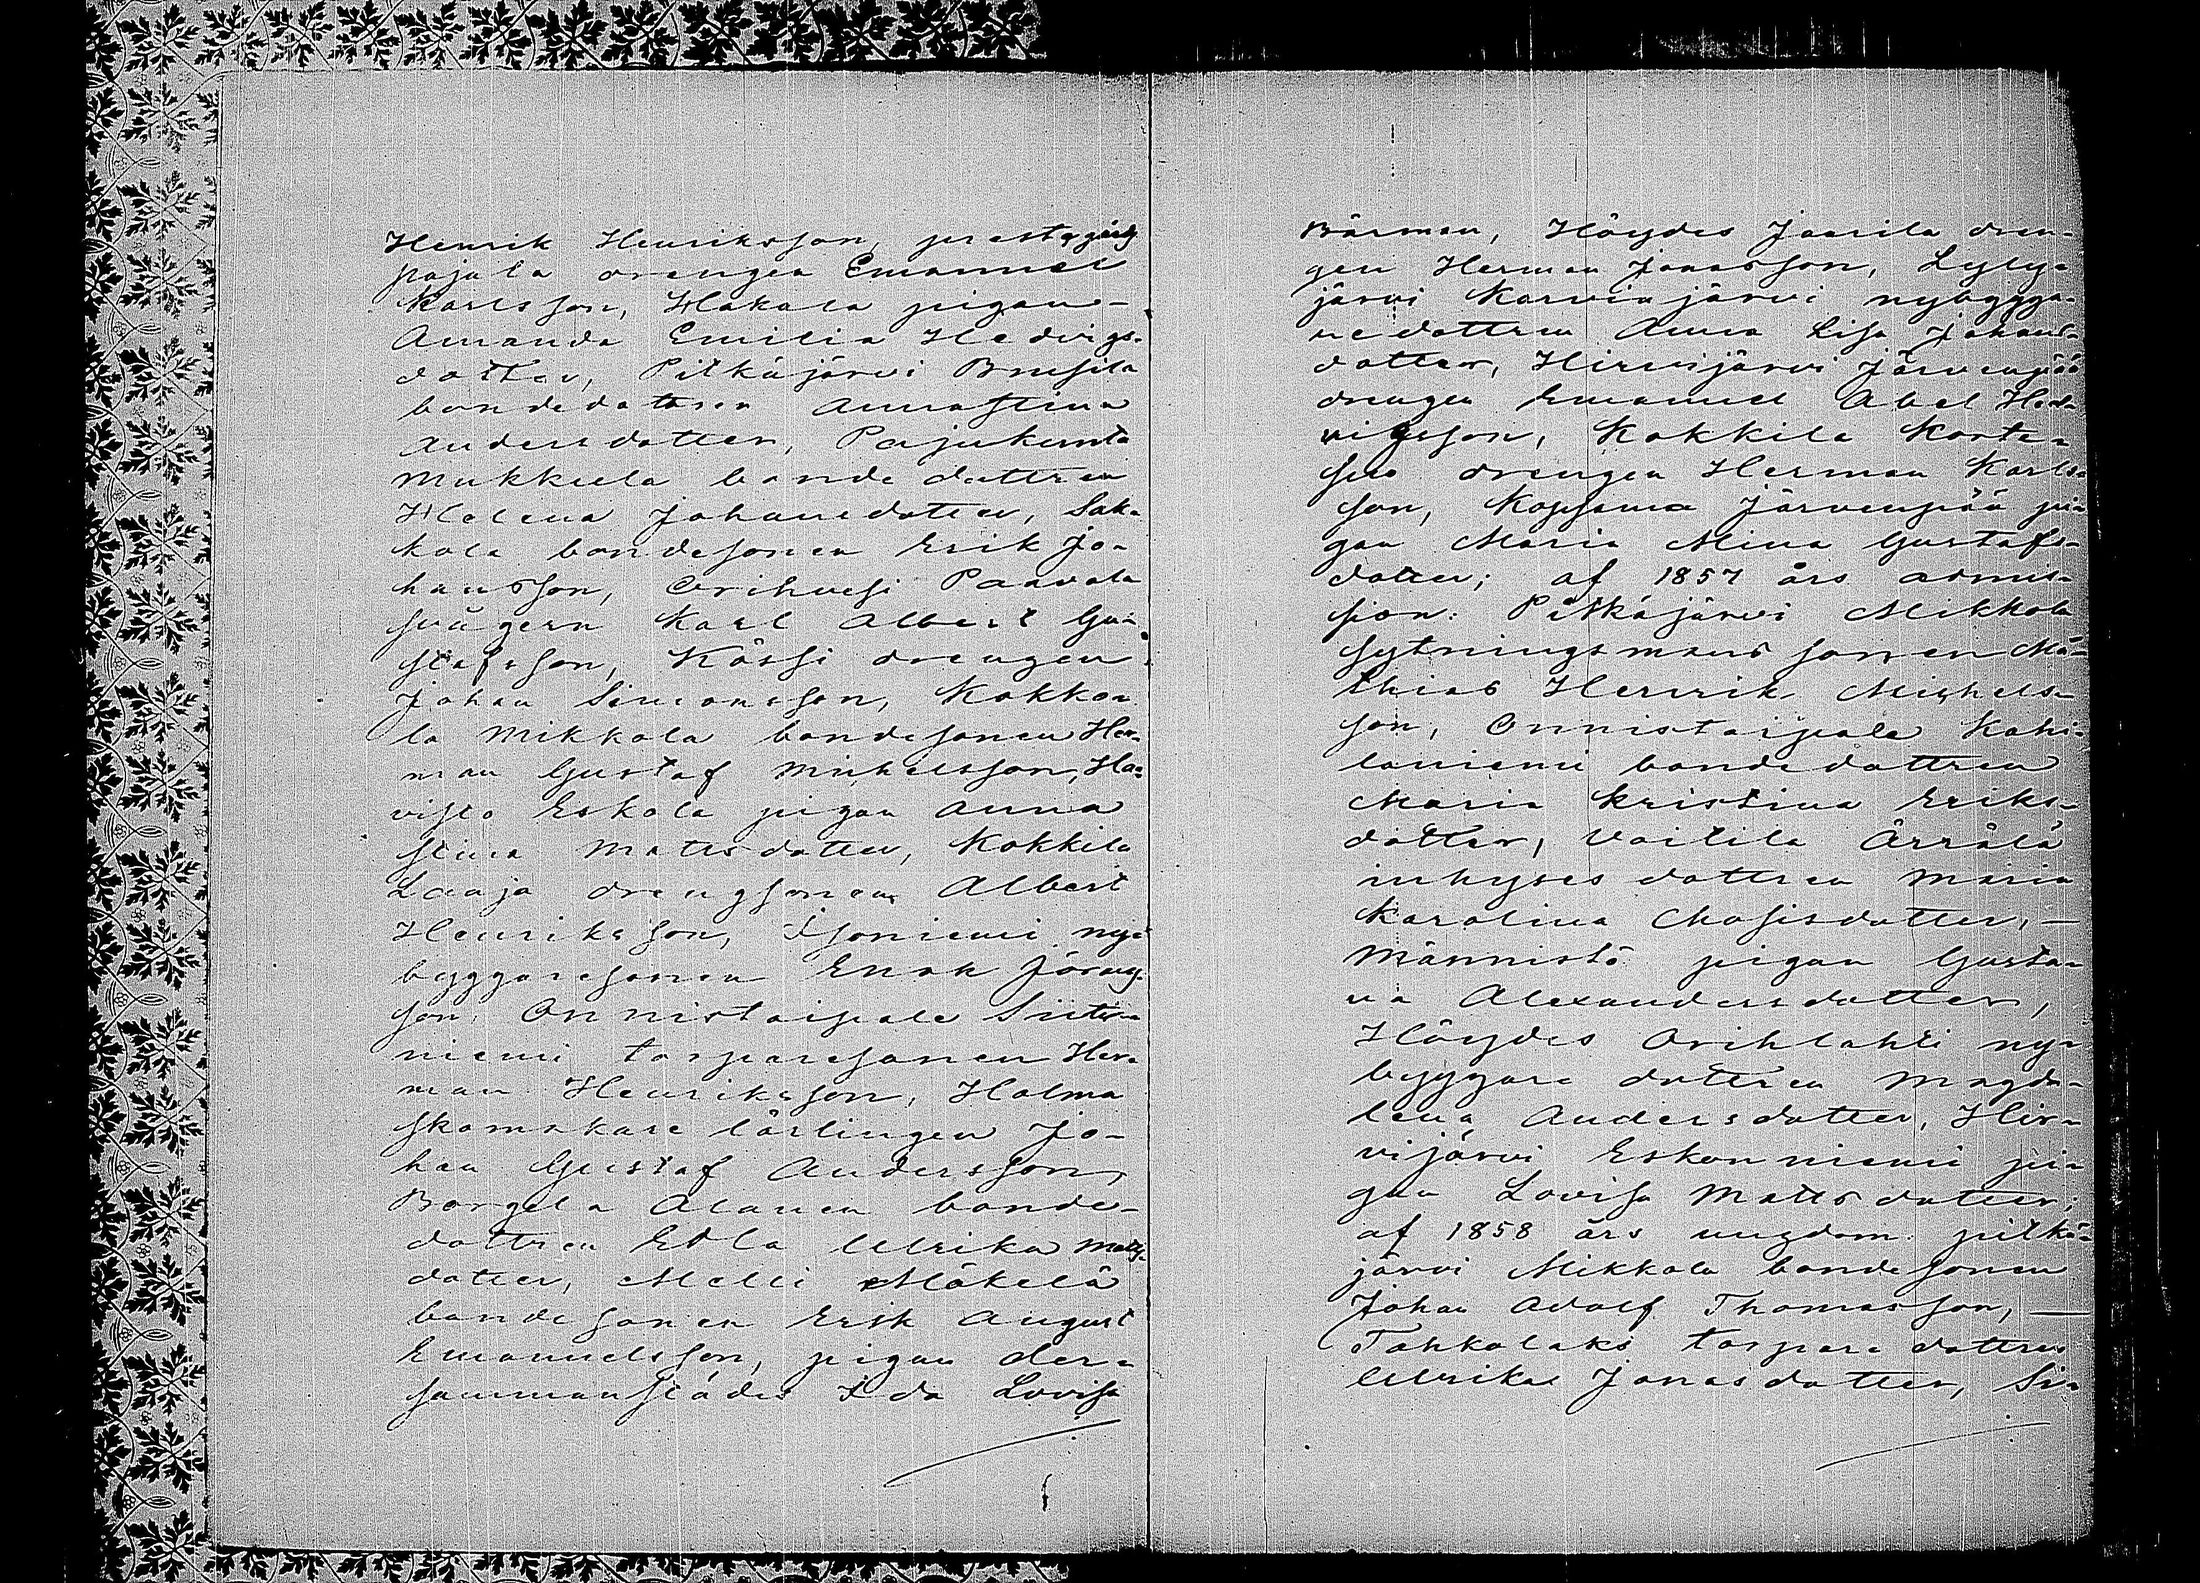 Henrik Henriksson, prestgård
pajala drengen Emanuel
Karlsson, Hakala pigan
Amanda Emilia Hedvigs-
dotter, Pitkäjärvi Brusila
bondedottren Annastina
Andersdotter, Pajukanta
Mukkula bondedottren
Helena Johansdotter, Sak-
kola bondesonen Erik Jo-
hansson, Orihvesi Paavola
svågern Karl Albert Gu-
stafsson, Kässi drengen
Johan Simonsson, Kokko-
la Mikkola bondesonen Her-
man Gustaf Michelsson, Ha-
visto Eskola pigan Anna
Stina Mattsdotter, Kokkila
Laaja drengsonen Albert
Henriksson, Isoniemi ny-
byggaresonen Enok Jörans-
son, Onnistaipale Siiti-
niemi torparesonen Her-
man Henriksson, Holma
skomakare lärlingen Jo-
han Gustaf Andersson,
Borgela Alanen bonde-
dottren Edla Ulrika Matts-
dotter, Melli Mäkelä
bondesonen Erik August
Emanuelsson, pigan der-
sammanstädes Ida Lovisa
Bärman, Höydes Jaarila dren-
gen Herman Jonasson, Lyly-
järvi Karviajärvi nybygga-
redottren Anna Lisa Johans-
dotter, Hirvijärvi Järvenpää
drengen Emanuel Abel Hed-
vigsson, Kokkila Korte-
suo drengen Herman Karls-
son, Kopsamo Järvenpää pi-
gan Maria Mina Gustafs-
dotter; af 1857 års admis-
sion: Pitkäjärvi Mikkola
sytningsmans sonen Ma-
thias Henrik Michels-
son, Onnistaipale Kahi-
laniemi bondedottren
Maria Kristina Eriks-
dotter, Vaitila Ärrälä
inhyses dottren Maria
Karolina Mosisdotter, —
Männistö pigan Gusta-
va Alexandersdotter,
Höydes Orihlahti ny-
byggare dottren Magda-
lena Andersdotter, Hir-
vijärvi Eskonniemi pi-
gan Lovisa Mattsdotter;
af 1858 års ungdom: Pitkä-
järvi Mikkola bondesonen
Johan Adolf Thomasson, —
Tahkolaks torpare dottren
Ulrika Jonasdotter, Si-